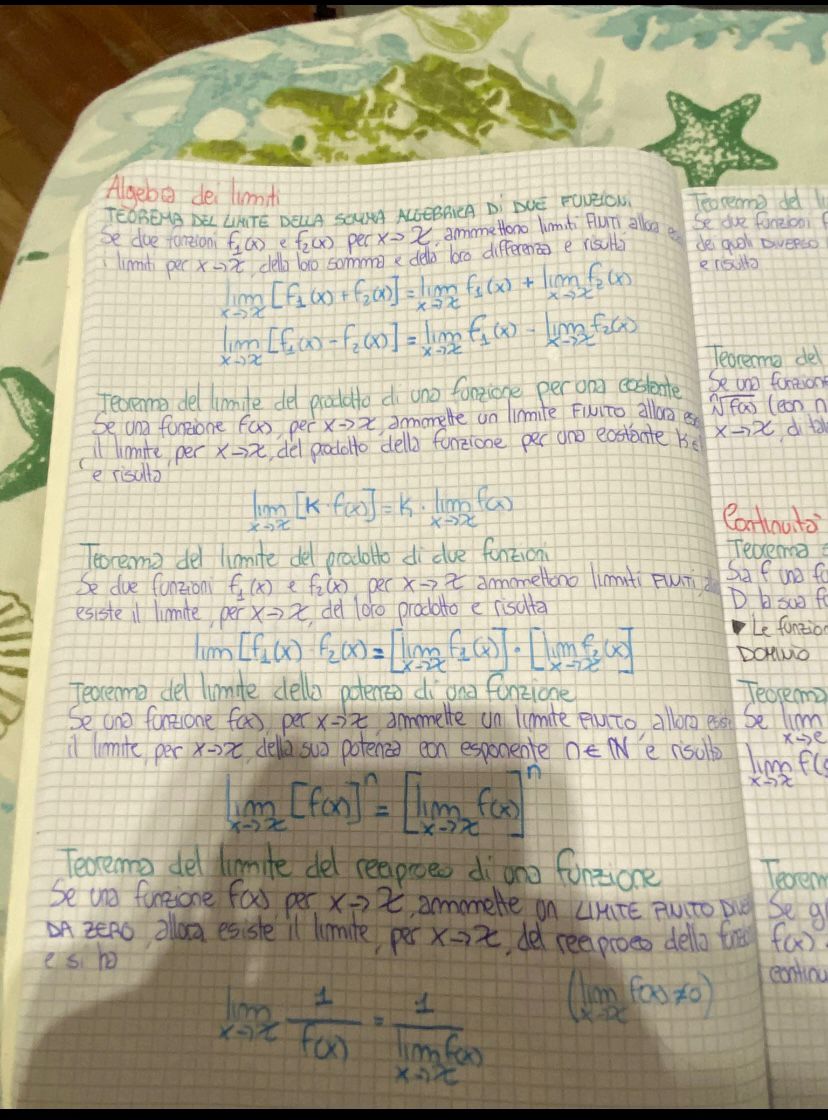 Algebra dei limiti
TEOREMA DEL LIMITE DELLA SOMMA ALGEBRICA DI DUE FUNZIONI
Se due funzioni f₁(x) e f₂(x) per x→x̄, ammettono limiti FINITI allora
i limiti per x→x̄, della loro somma e della loro differenza e risulta
lim x→x̄ [f₁(x) + f₂(x)] = lim x→x̄ f₁(x) + lim x→x̄ f₂(x)
lim x→x̄ [f₁(x) - f₂(x)] = lim x→x̄ f₁(x) - lim x→x̄ f₂(x)
Teorema del limite del prodotto di una funzione per una costante
Se una funzione f(x), per x→x̄, ammette un limite FINITO allora
il limite, per x→x̄, del prodotto della funzione per una costante K
e risulta
lim x→x̄ [K · f(x)] = K · lim x→x̄ f(x)
Teorema del limite del prodotto di due funzioni
Se due funzioni f₁(x) e f₂(x) per x→x̄ ammettono limiti FINITI,
esiste il limite, per x→x̄, del loro prodotto e risulta
lim [f₁(x) · f₂(x) = [lim x→x̄ f₁(x)] · [lim x→x̄ f₂(x)]
Teorema del limite della potenza di una funzione
Se una funzione f(x), per x→x̄, ammette un limite FINITO, allora
il limite, per x→x̄, della sua potenza con esponente n∈ℕ e risulta
lim x→x̄ [f(x)]ⁿ = [lim x→x̄ f(x)]ⁿ
Teorema del limite del reciproco di una funzione
Se una funzione f(x), per x→x̄, ammette un LIMITE FINITO
DA ZERO, allora esiste il limite, per x→x̄, del reciproco della
e si ha
lim x→x̄ 1/f(x) = 1/lim x→x̄ f(x) (lim x→x̄ f(x) ≠ 0)
Teorema del
Se due funzioni
dei quali DIVERSO
e risulta
Teorema del
Se una funzione
ⁿ√f(x) (con n
x→x̄, di
Continuità
Teorema
Sia f una
D la sua
▶ Le funzioni
DOMINIO
Teorema
Se lim x→c
lim x→x̄ f(
Se
f(x)